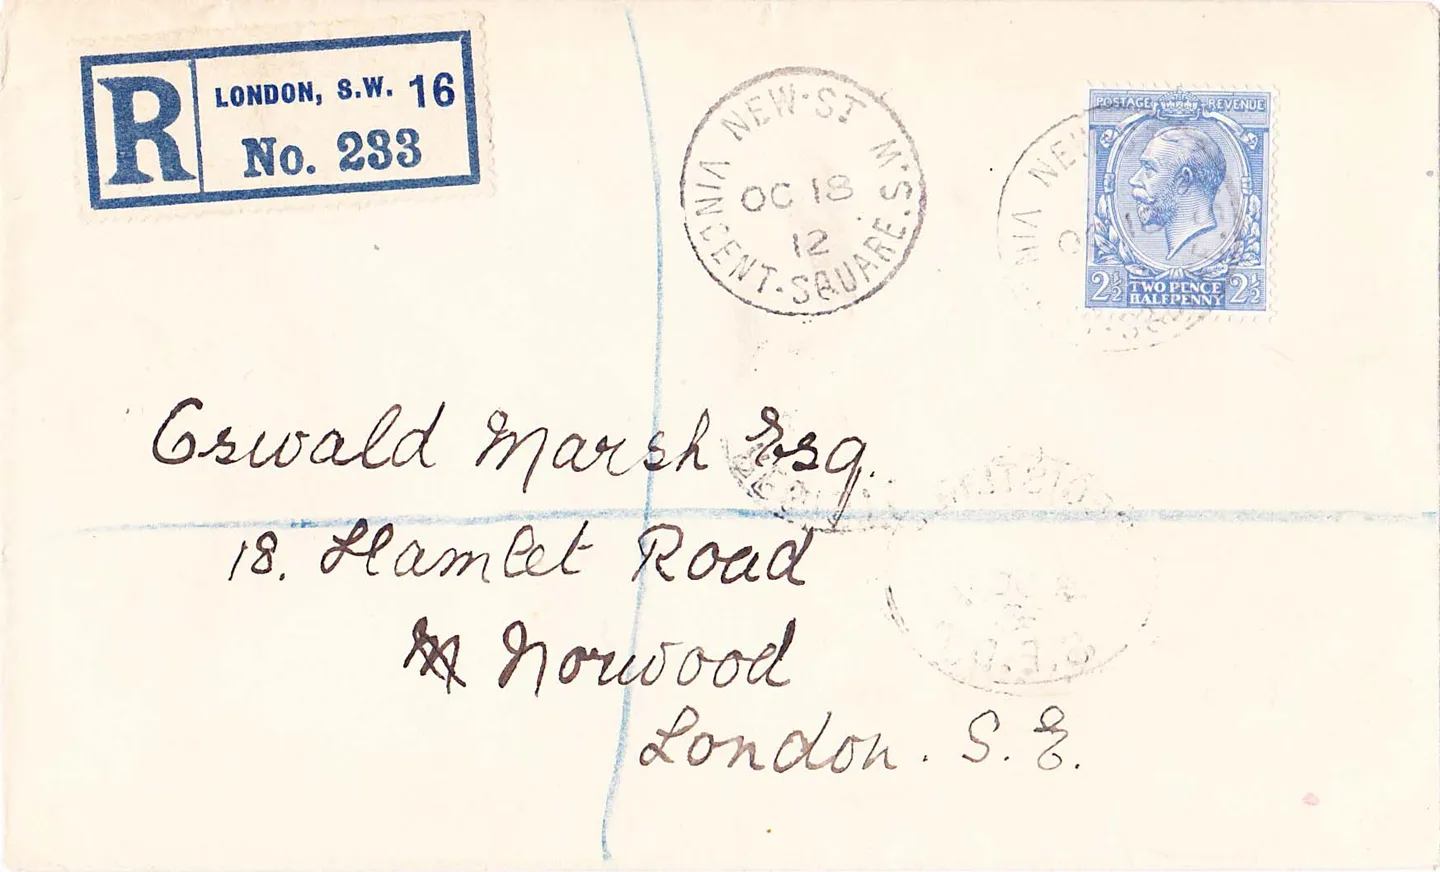 R
LONDON, S.W. 16
No. 233
NEW-ST
VINCENT-SQUARE.S.W.
OC 18
12
POSTAGE REVENUE
2½ TWO PENCE HALFPENNY 2½
Oswald Marsh Esq.
18. Hamlet Road
Norwood
London. S.E.